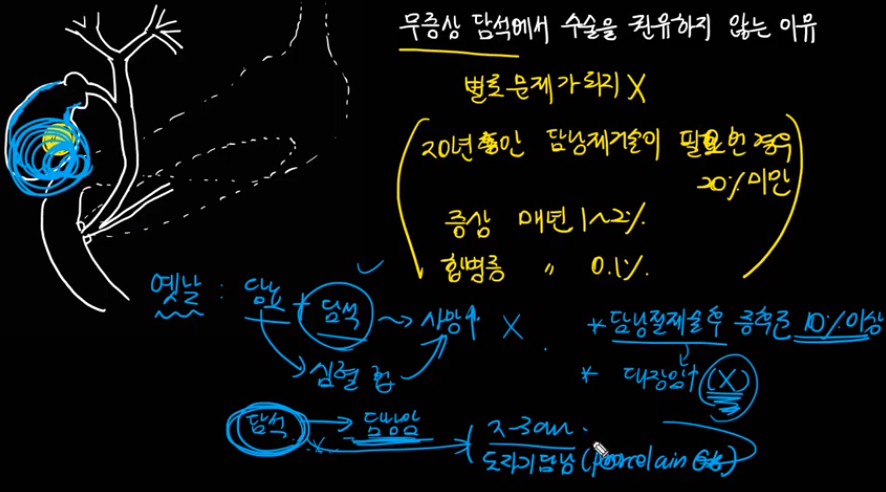 무증상 담석에서 수술을 권유하지 않는 이유
별로 문제가 되지 X
20년 동안 담낭제거술이 필요한 경우
20% 미만
증상 매년 1~2%
합병증 〃 0.1%
옛날 : 당뇨 + 담석 → 사망↑ X
심혈관
* 담낭절제술후 증후군 10% 이상
* 대장암↑ (X)
담석 → 담낭암
2~3cm
도자기담낭 (porcelain GB)